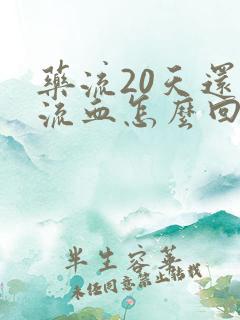 药流20天還
流血怎麼回
半生容華
未经同意禁止转载